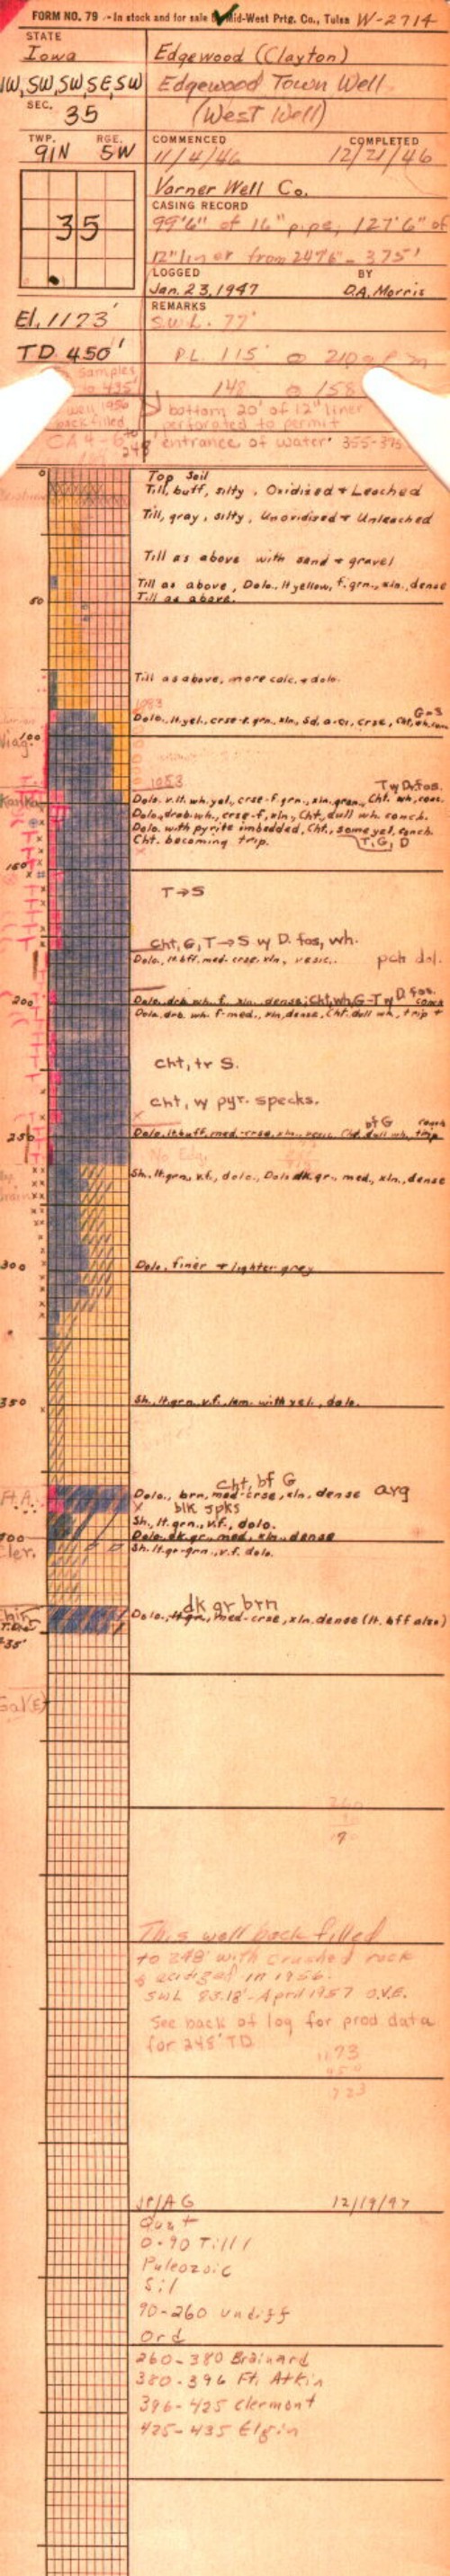 FORM NO. 79 - In stock and for sale Mid-West Prtg. Co., Tulsa W-2714
STATE
Iowa
Edgewood (Clayton)
SW, SW, SE, SW
Edgewood Town Well
SEC. 35
(West Well)
TWP. RGE.
91N 5W
COMMENCED COMPLETED
11/4/46 12/21/46
Varner Well Co.
35
CASING RECORD
99'6" of 16" pipe, 127'6" of
12" liner from 247'6" - 375'
LOGGED BY
Jan. 23, 1947 D.A. Morris
El. 1173'
REMARKS
S.W.L. 77'
TD 450'
PL 115' @ 210 g.p.m
samples
to 435'
148 @ 158
well 1956
backfilled
to 248'
bottom 20' of 12" liner
perforated to permit
entrance of water 355-375
0
Top Soil
Till, buff, silty, Oxidized + Leached
Till, gray, silty, Unoxidized + Unleached
Till as above with sand + gravel
Till as above, Dolo., lt yellow, f. grn., xln., dense
50
Till as above.
Till as above, more calc. + dolo.
1083
G=S
Dolo., lt. yel., crse-f. grn., xln., Sd,
100
1053
T w D. fos.
Dolo. v. lt. wh. yel., crse-f. grn., xln., Cht. wh, conc.
Kanka
Dolo., drab wh., crse-f., xln., Cht., dull wh. conch.
Dolo. with pyrite imbedded, Cht., some yel. conch.
Cht. becoming trip. T, G, D
150
T→S
Cht, G, T→S w D. fos, wh.
Dolo., lt. bff. med.-crse, xln., vesic. pch dol.
200
Dolo. drb wh. f. xln. dense; Cht, wh, G-T w D fos. conch
Dolo. drb. wh. f-med., xln, dense, Cht. dull wh, trip +
Cht, tr S.
Cht, w pyr. specks.
bf G conch
250
Dolo. lt. buff, med.-crse, xln., vesic. Cht. dull wh, trip
No Edg.
Sh., lt. grn., v.f., dolo., Dolo dk. gr., med., xln., dense
300
Dolo. finer + lighter grey
350
Sh., lt. grn., v.f., lam. with yel., dolo.
Cht, bf G
Ft. A.
Dolo., brn, med-crse, xln, dense arg
x blk spks
Sh., lt. grn., v.f., dolo.
400
Dolo. dk. gr., med., xln., dense
Cler.
Sh. lt. gr-grn., v.f. dolo.
dk gr brn
Dolo., lt. grn., med-crse, xln. dense (lt. bff also)
T.D.
435'
This well back filled
to 248' with crushed rock
& acidized in 1956.
SWL 83.18' - April 1957 O.V.E.
See back of log for prod data
for 248' TD
1173
450
723
JP/AG 12/19/97
Quat
0-90 Till
Paleozoic
Sil
90-260 undiff
Ord
260-380 Brainard
380-396 Ft. Atkin
396-425 Clermont
425-435 Elgin